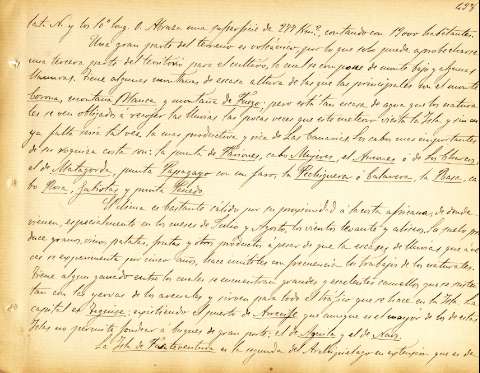 lat. N. y los 10° long. O. Abraza una superficie de 777 Km², contando con 17000 habitantes.
Una gran parte del terreno es volcánico, por lo que solo puede aprobecharse
una tercera parte del territorio para el cultivo, lo cual se compone de monte bajo y algunas
llanuras. Tiene algunas montañas de escasa altura de las que las principales son el monte
Corona, montaña Blanca y montaña de Fuego; pero está tan escasa de agua que los natura-
les se ven obligados á recoger las lluvias las pocas veces que este meteoro visita la Isla, y sin cu-
ya falta sería tal vez la mas productiva y rica de las Canarias. Los cabos mas importantes
de su costa son: la punta de Fariones, cabo Mujeres, el Ancones ó de los Charcos,
el de Matagorda, punta Papagayo con su faro, la Pechiguera ó Calavera, la Baja, ca-
bo Roca, Gabiotas y punta Penedo.
El clima es bastante cálido por su proximidad á la costa africana, de donde
vienen, especialmente en los meses de Julio y Agosto, los vientos levante y abrasa. Su suelo pro-
duce granos, vino, patatas, frutas y otros productos á pesar de que la escasez de lluvias que á ve-
ces se experimenta por cinco años, hace inutiles con frecuencia los trabajos de los naturales.
Tiene algun ganado entre los cuales se encuentran grandes y excelentes camellos que se susten-
tan con las yervas de los asientos y sirven para todo el trafico que se hace en la Isla. La
capital es Teguise; existiendo el puerto de Arrecife que aunque es el mayor de los de estas
Islas no permite fondear á buques de gran porte; el de Aguila y el de Naos.
La Isla de Fuerteventura es la segunda del Archipielago en extension que es de